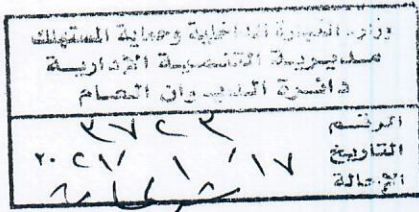 وزارة التجارة الداخلية وحماية المستهلك
مديرية التنمية الادارية
دائرة الديوان العام
الرقم ٣٧٢٣
التاريخ ١٧ / ١ / ٢٠٢١
الإحالة